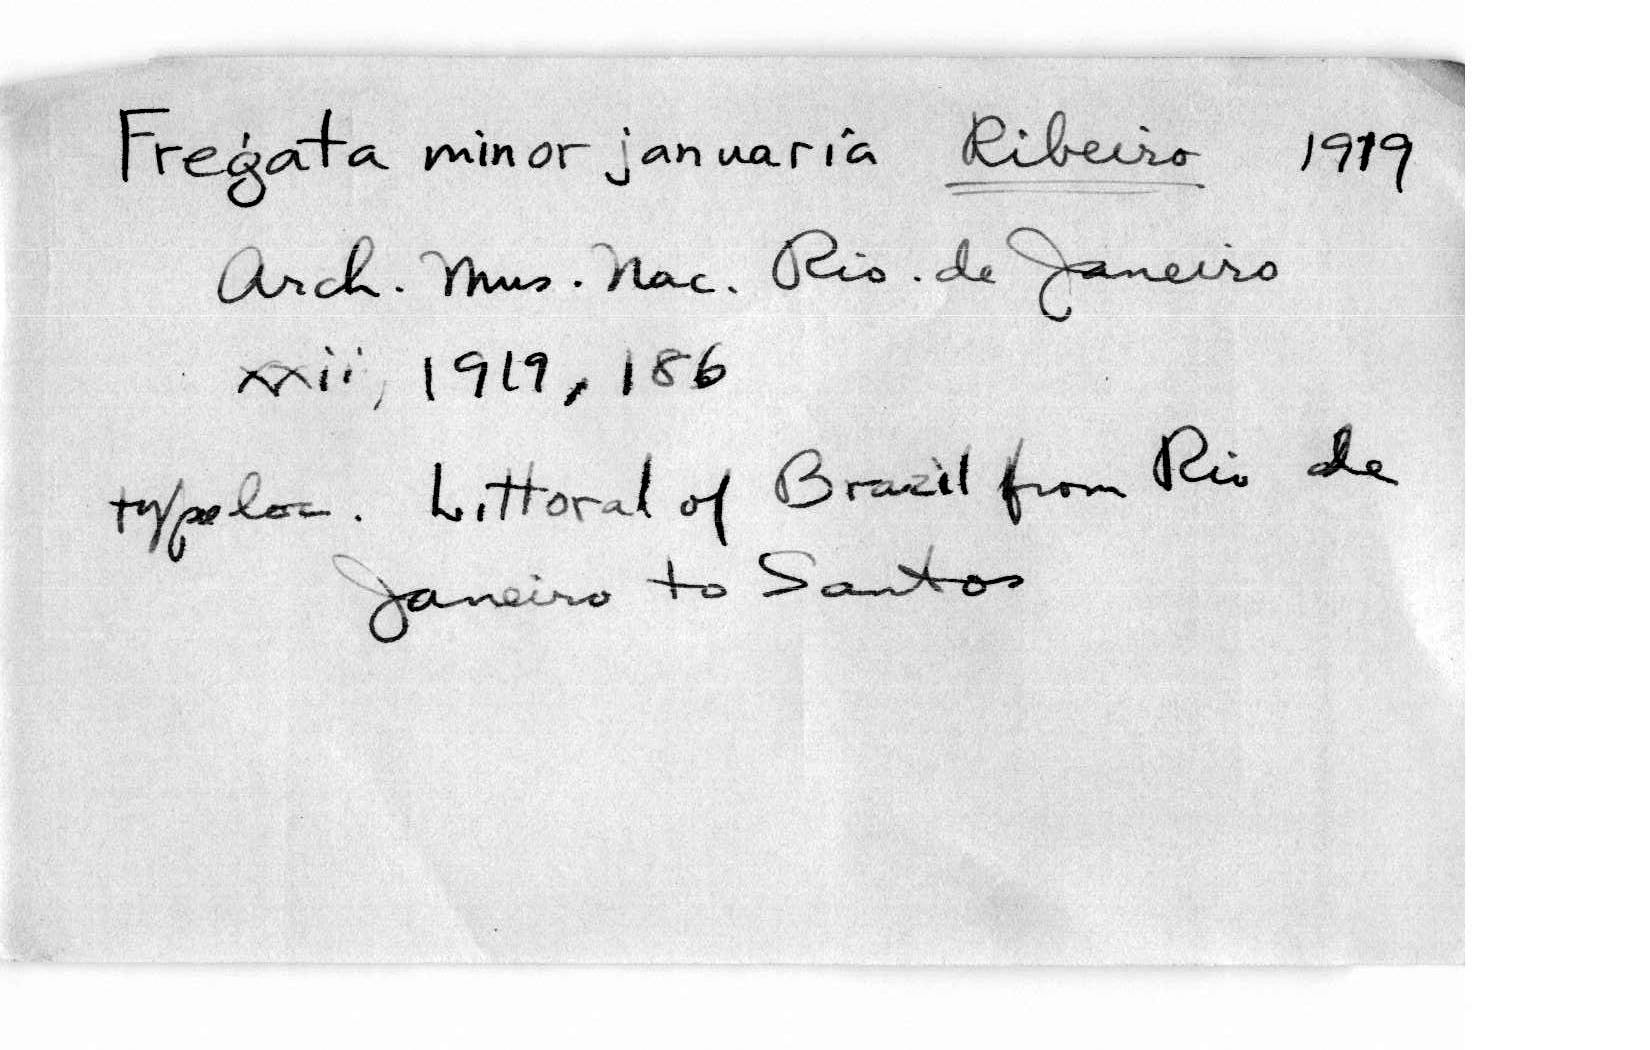 Fregata minor januaria Ribeiro 1919
Arch. Mus. Nac. Rio. de Janeiro
xxii, 1919, 186
type loc. Littoral of Brazil from Rio de
Janeiro to Santos